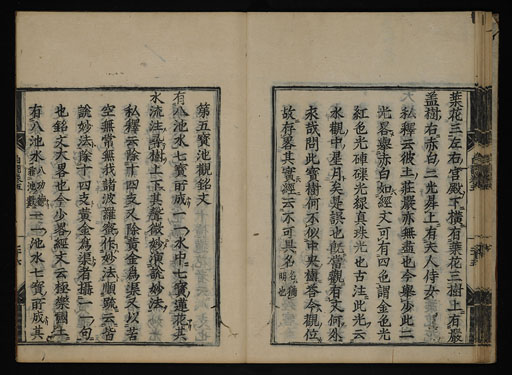 葉花三左右宮殿下橫有葉花三樹上有嚴
蓋樹右赤白二光昇上有天人侍女
私釋云彼土莊嚴亦無盡也今舉少此二
光畧舉赤白如經文可有四色謂金色光
紅色光 磲光綠真珠光也古注此光云
水觀中星月矣是誤也既當觀有文何
求哉問此寶樹何不似中央 答今觀位
故存畧其實經云不可具名
第五寶池觀銘文
有八池水七寶所成一一水中七寶蓮花其
水流注尋樹上下其聲微妙演說妙法
私釋云除十四支又除黃金為渠又以苦
空無常無我諸波羅蜜作妙法順 云皆
說妙法除十四支黃金為渠者攝一一句
也銘文大畧也今少畧經文云極樂國土
有八池水 一一池水七寶所成其